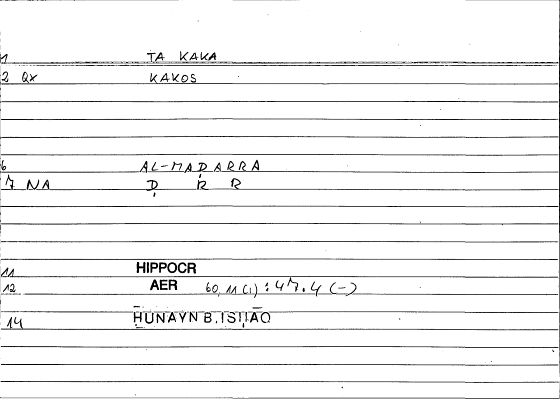 1 TA KAKA
2 QX KAKOS
6 AL-MAḌARRA
7 NA Ḍ R R
11 HIPPOCR
12 AER 60,11(1):47.4(-)
14 ḤUNAYN B.ISḤĀQ